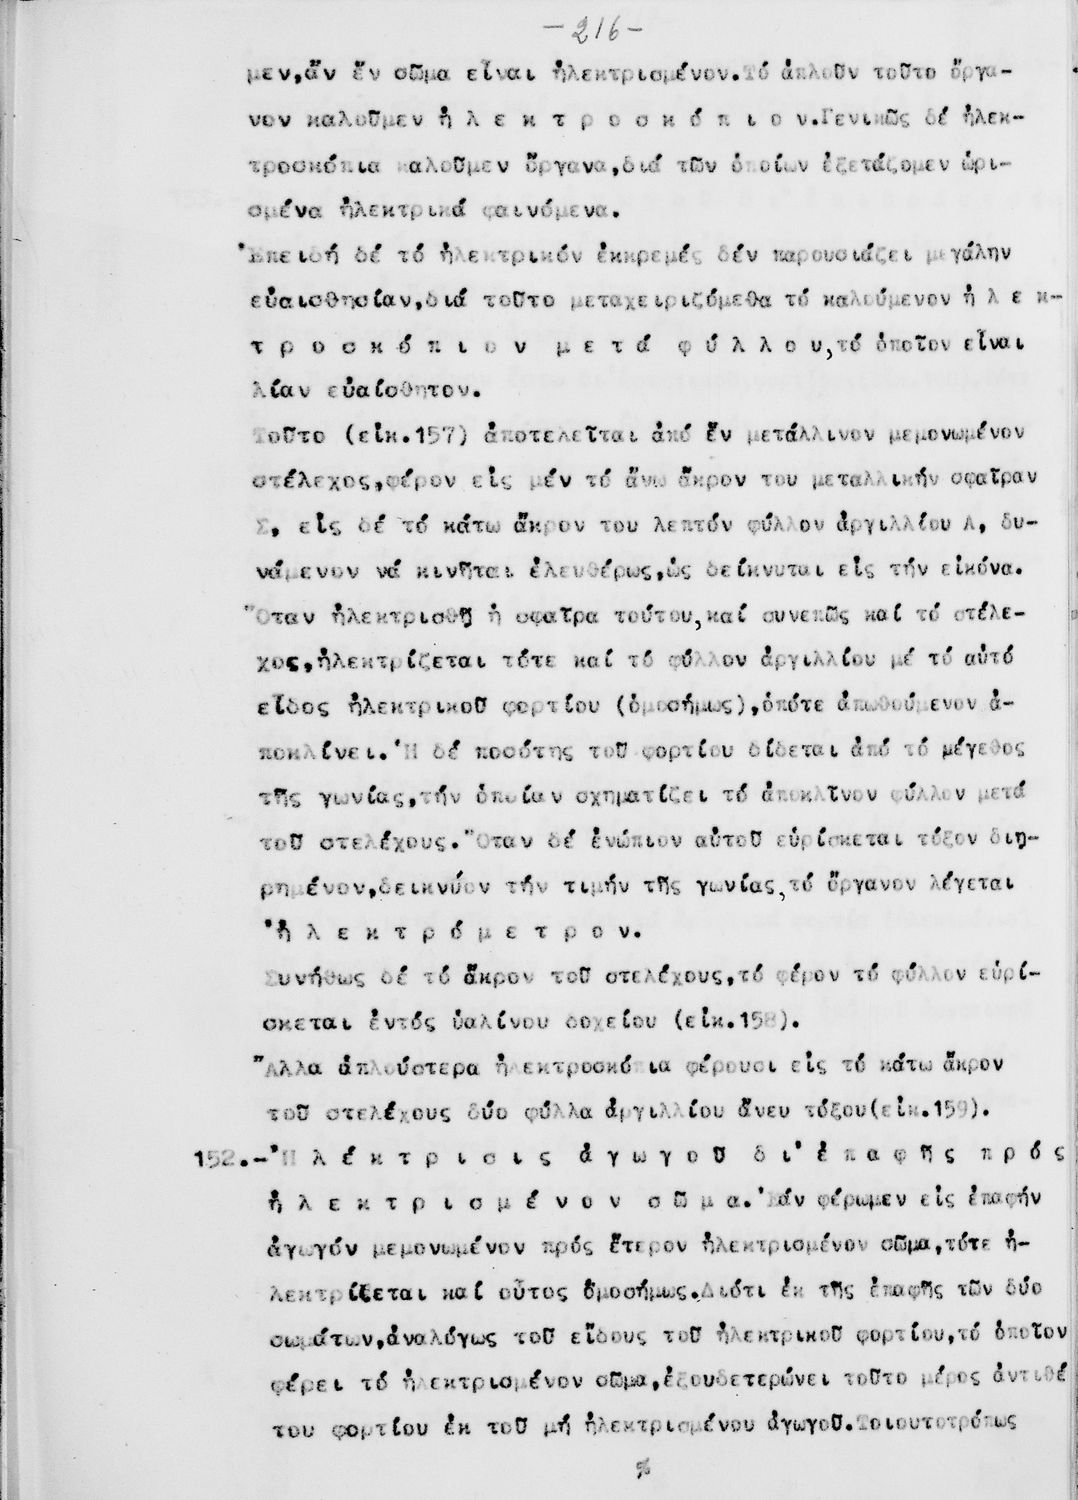 -216-
μεν,ἄν ἕν σῶμα εἶναι ἠλεκτρισμένον.Τό ἁπλοῦν τοῦτο ὄργα-
νον καλοῦμεν ἠ λ ε κ τ ρ ο σ κ ό π ι ο ν.Γενικῶς δέ ἠλεκ-
τροσκόπια καλοῦμεν ὄργανα,διά τῶν ὁποίων ἐξετάζομεν ὡρι-
σμένα ἠλεκτρικά φαινόμενα.
Ἐπειδή δέ τό ἠλεκτρικόν ἐκκρεμές δέν παρουσιάζει μεγάλην
εὐαισθησίαν,διά τοῦτο μεταχειριζόμεθα τό καλούμενον ἠ λ ε κ-
τ ρ ο σ κ ό π ι ο ν μ ε τ ά φ ύ λ λ ο υ,τό ὁποῖον εἶναι
λίαν εὐαίσθητον.
Τοῦτο (εἰκ.157) ἀποτελεῖται ἀπό ἕν μετάλλινον μεμονωμένον
στέλεχος,φέρον εἰς μέν τό ἄνω ἄκρον του μεταλλικήν σφαῖραν
Σ, εἰς δέ τό κάτω ἄκρον του λεπτόν φύλλον ἀργιλλίου Α, δυ-
νάμενον νά κινῆται ἐλευθέρως,ὡς δείκνυται εἰς τήν εἰκόνα.
Ὅταν ἠλεκτρισθῇ ἡ σφαῖρα τούτου,καί συνεπῶς καί τό στέλε-
χος,ἠλεκτρίζεται τότε καί τό φύλλον ἀργιλλίου μέ τό αὐτό
εἶδος ἠλεκτρικοῦ φορτίου (ὁμοσήμως),ὁπότε ἀπωθούμενον ἀ-
ποκλίνει.Ἡ δέ ποσότης τοῦ φορτίου δίδεται ἀπό τό μέγεθος
τῆς γωνίας,τήν ὁποίαν σχηματίζει τό ἀποκλῖνον φύλλον μετά
τοῦ στελέχους.Ὅταν δέ ἐνώπιον αὐτοῦ εὑρίσκεται τόξον διῃ-
ρημένον,δεικνύον τήν τιμήν τῆς γωνίας,τό ὄργανον λέγεται
Ἠ λ ε κ τ ρ ό μ ε τ ρ ο ν.
Συνήθως δέ τό ἄκρον τοῦ στελέχους,τό φέρον τό φύλλον εὑρί-
σκεται ἐντός ὑαλίνου δοχείου (εἰκ.158).
Ἄλλα ἁπλούστερα ἠλεκτροσκόπια φέρουσι εἰς τό κάτω ἄκρον
τοῦ στελέχους δύο φύλλα ἀργιλλίου ἄνευ τόξου(εἰκ.159).
152.-Ἠ λ έ κ τ ρ ι σ ι ς ἀ γ ω γ ο ῦ δ ι' ἐ π α φ ῆ ς π ρ ό ς
ἠ λ ε κ τ ρ ι σ μ έ ν ο ν σ ῶ μ α.Ἐάν φέρωμεν εἰς ἐπαφήν
ἀγωγόν μεμονωμένον πρός ἕτερον ἠλεκτρισμένον σῶμα,τότε ἠ-
λεκτρίζεται καί οὗτος ὁμοσήμως.Διότι ἐκ τῆς ἐπαφῆς τῶν δύο
σωμάτων,ἀναλόγως τοῦ εἴδους τοῦ ἠλεκτρικοῦ φορτίου,τό ὁποῖον
φέρει τό ἠλεκτρισμένον σῶμα,ἐξουδετερώνει τοῦτο μέρος ἀντιθέ
του φορτίου ἐκ τοῦ μή ἠλεκτρισμένου ἀγωγοῦ.Τοιουτοτρόπως
%